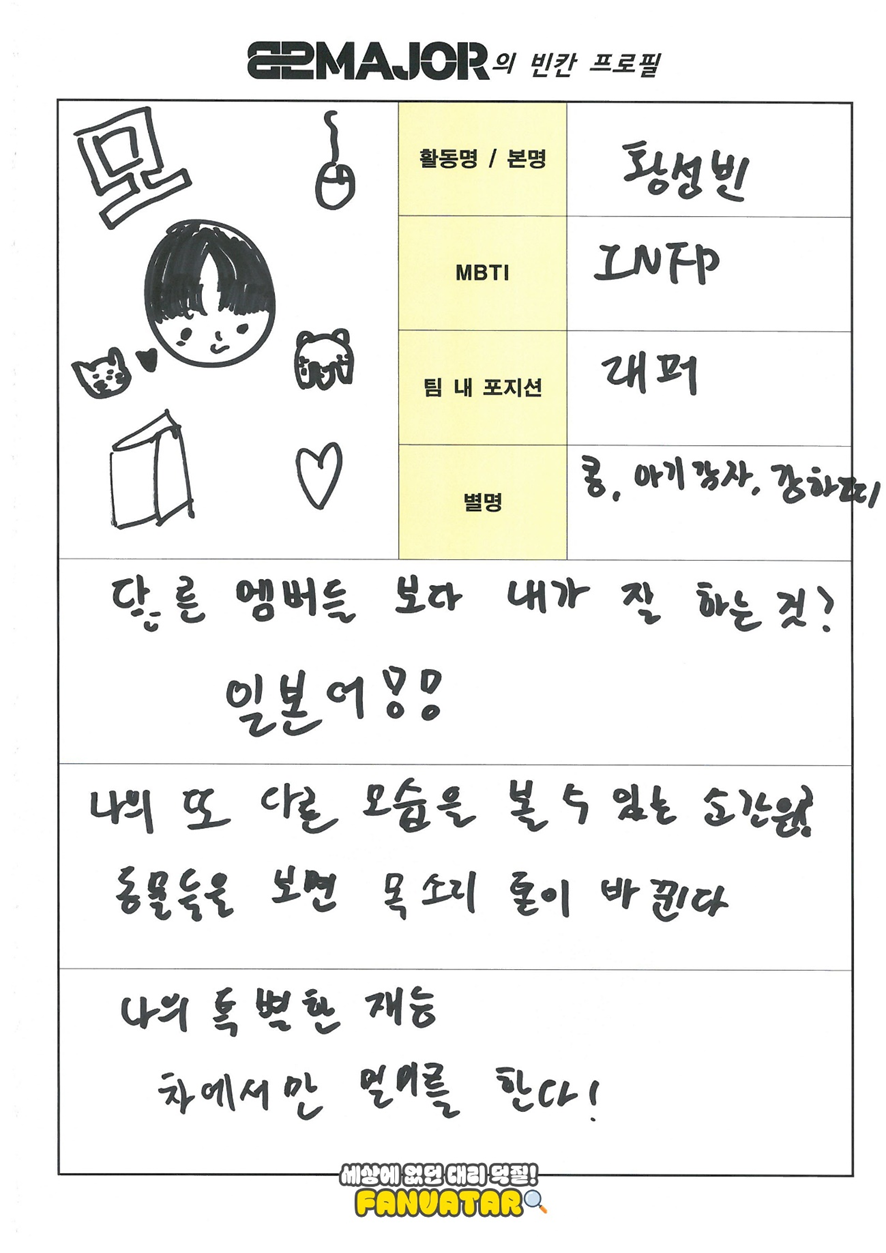 82MAJOR의 빈칸 프로필
활동명 / 본명
황성빈
MBTI
INFP
팀 내 포지션
래퍼
별명
콩, 아기감자, 강하띠
다른 멤버들 보다 내가 잘 하는 것?
일본어!!
나의 또 다른 모습을 볼 수 있는 순간은?
동물들을 보면 목소리 톤이 바뀐다
나의 특별한 재능
차에서만 멀미를 한다!
세상에 없던 대리 덕질!
FANVATAR